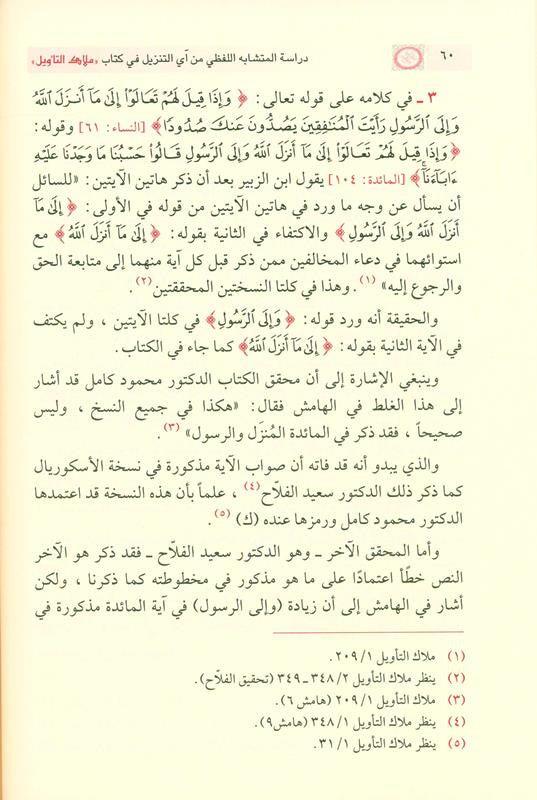 ٦٠
دراسة المتشابه اللفظي من آي التنزيل في كتاب «ملاك التأويل»
٣ ـ في كلامه على قوله تعالى: ﴿ وَإِذَا قِيلَ لَهُمْ تَعَالَوْا۟ إِلَىٰ مَآ أَنزَلَ ٱللَّهُ
وَإِلَى ٱلرَّسُولِ رَأَيْتَ ٱلْمُنَـٰفِقِينَ يَصُدُّونَ عَنكَ صُدُودًا﴾ [النساء: ٦١] وقوله:
﴿وَإِذَا قِيلَ لَهُمْ تَعَالَوْا۟ إِلَىٰ مَآ أَنزَلَ ٱللَّهُ وَإِلَى ٱلرَّسُولِ قَالُوا۟ حَسْبُنَا مَا وَجَدْنَا عَلَيْهِ
ءَابَآءَنَآ﴾ [المائدة: ١٠٤] يقول ابن الزبير بعد أن ذكر هاتين الآيتين: «للسائل
أن يسأل عن وجه ما ورد في هاتين الآيتين من قوله في الأولى: ﴿ إِلَىٰ مَآ
أَنزَلَ ٱللَّهُ وَإِلَى ٱلرَّسُولِ ﴾ والاكتفاء في الثانية بقوله: ﴿ إِلَىٰ مَآ أَنزَلَ ٱللَّهُ ﴾ مع
استوائهما في دعاء المخالفين ممن ذكر قبل كل آية منهما إلى متابعة الحق
والرجوع إليه» (١). وهذا في كلتا النسختين المحققتين(٢).
والحقيقة أنه ورد قوله: ﴿ وَإِلَى ٱلرَّسُولِ﴾ في كلتا الآيتين ، ولم يكتف
في الآية الثانية بقوله: ﴿ إِلَىٰ مَآ أَنزَلَ ٱللَّهُ﴾ كما جاء في الكتاب.
وينبغي الإشارة إلى أن محقق الكتاب الدكتور محمود كامل قد أشار
إلى هذا الغلط في الهامش فقال: «هكذا في جميع النسخ ، وليس
صحيحاً ، فقد ذكر في المائدة المُنزَل والرسول» (٣).
والذي يبدو أنه قد فاته أن صواب الآية مذكورة في نسخة الأسكوريال
كما ذكر ذلك الدكتور سعيد الفلاّح(٤) ، علماً بأن هذه النسخة قد اعتمدها
الدكتور محمود كامل ورمزها عنده (ك) (٥).
وأما المحقق الآخر ـ وهو الدكتور سعيد الفلاّح ـ فقد ذكر هو الآخر
النص خطأً اعتمادًا على ما هو مذكور في مخطوطته كما ذكرنا ، ولكن
أشار في الهامش إلى أن زيادة (وإلى الرسول) في آية المائدة مذكورة في
(١) ملاك التأويل ٢٠٩/١.
(٢) ينظر ملاك التأويل ٣٤٨/٢ ـ ٣٤٩ (تحقيق الفلاّح).
(٣) ملاك التأويل ٢٠٩/١ (هامش ٦).
(٤) ينظر ملاك التأويل ٣٤٨/١ (هامش٩).
(٥) ينظر ملاك التأويل ٣١/١.